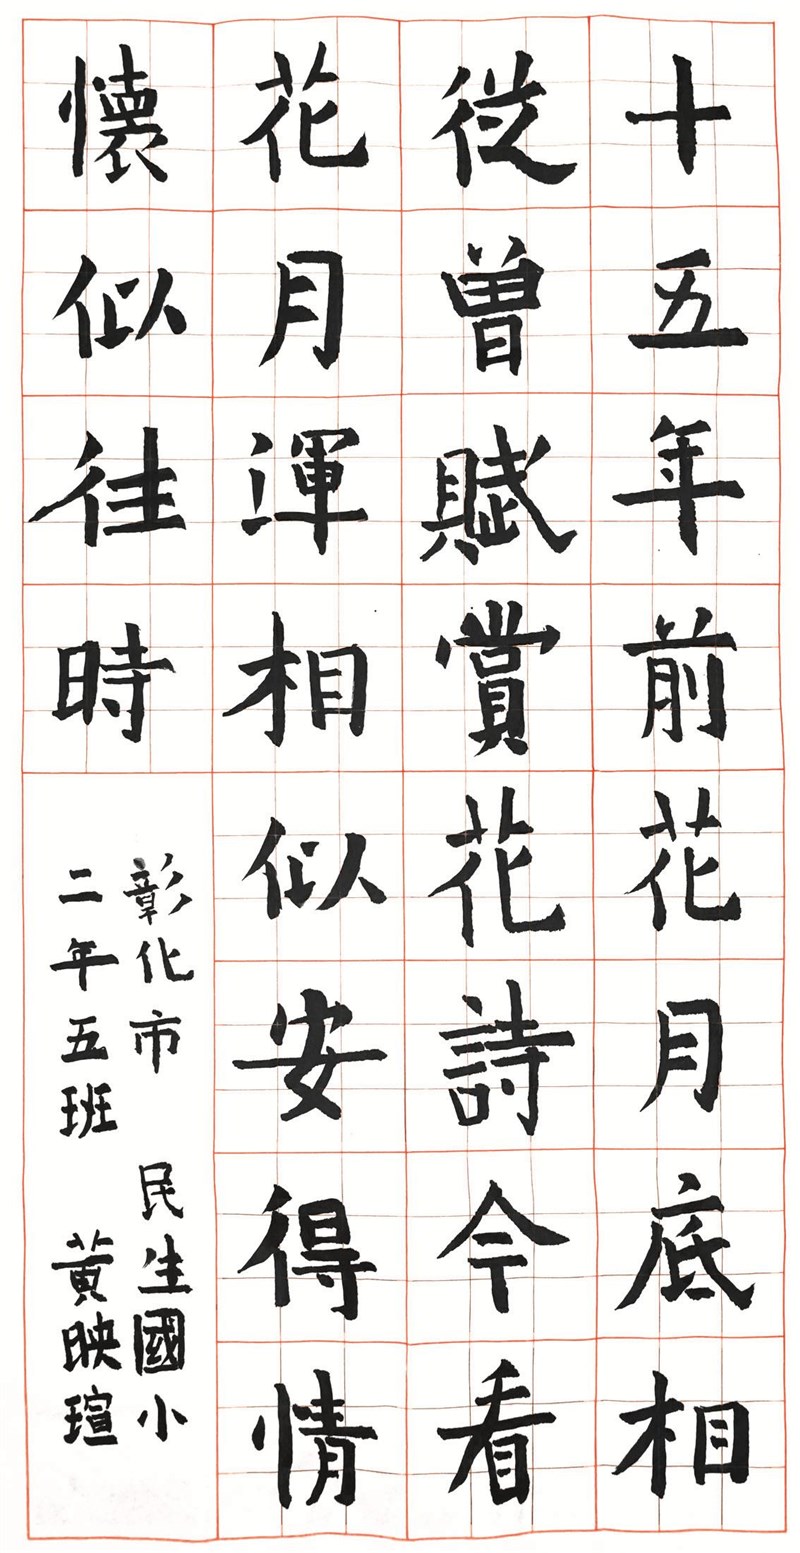 十五年前花月底相
從曾賦賞花詩今看
花月渾相似安得情
懷似往時
彰化市 民生國小
二年五班 黃映瑄